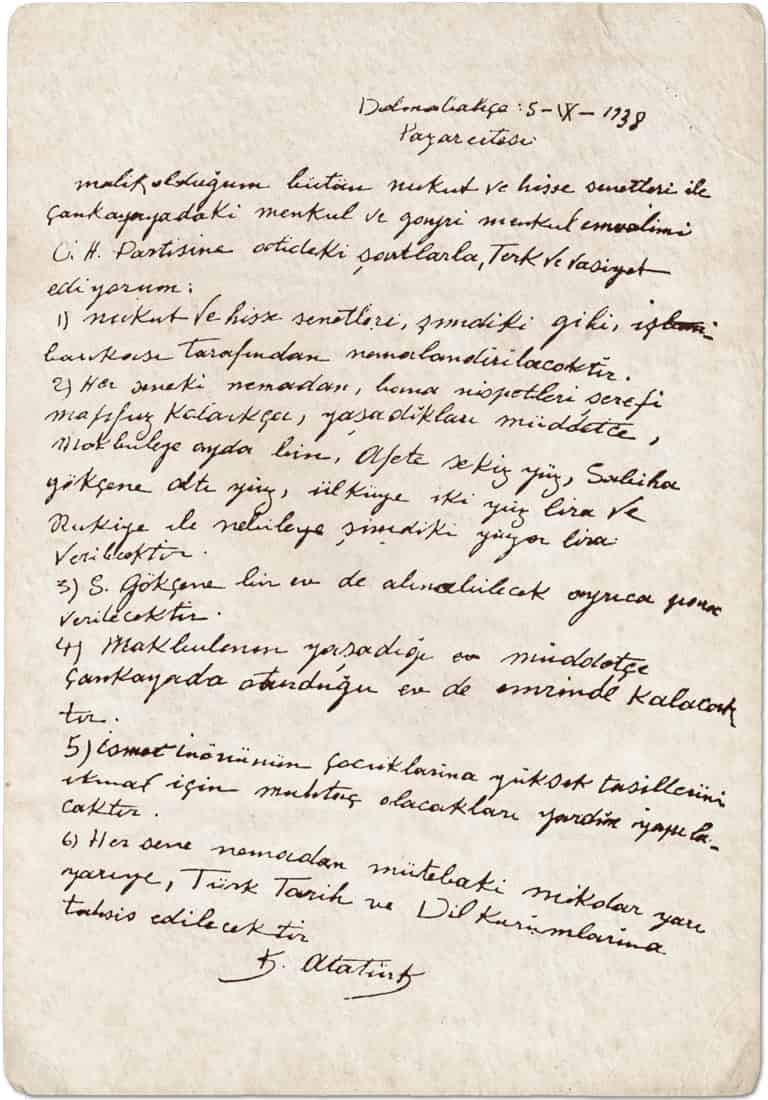 Dolmabahçe: 5-IX-1938
Pazarertesi
malik olduğum bütün nukut ve hisse senetleri ile
Çankayayadaki menkul ve gayri menkul emvalimi
C. H. Partisine atideki şartlarla, Terk ve vasiyet
ediyorum:
1) nukut ve hisse senetleri, şimdiki gibi, iş
bankası tarafından nemalandırılacaktır.
2) Her seneki nemadan, bana nispetleri şerefi
mahfuz Kaldıkça, yaşadıkları müddetçe,
Makbuleye ayda bin, Afete sekiz yüz, Sabiha
gökçene altı yüz, ülküye iki yüz lira ve
Rukiye ile nebileye şimdiki yüzer lira
verilecektir.
3) S. Gökçene bir ev de alınabilecek ayrıca para
verilecektir.
4) Makbulenin yaşadığı ev müddetçe
Çankayada oturduğu ev de emrinde Kalacak
tır.
5) ismet inönünün çocuklarına yüksek tasillerini
ikmal için muhtaç olacakları yardım yapıla-
caktır.
6) Her sene nemadan mütebaki mikdar yarı
yarıya, Türk Tarih ve Dil Kurumlarına
tahsis edilecektir
K. Atatürk